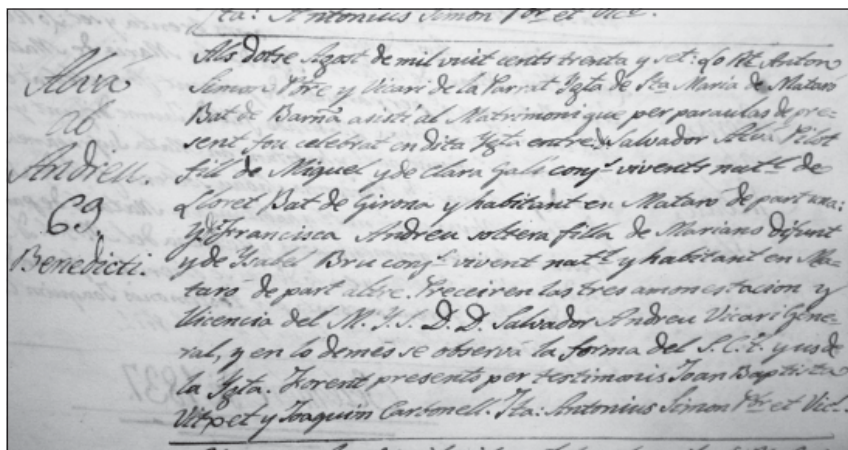 ta: Antonius Simon Pbr. et Vic.
Als dotse Agost de mil vuit cents trenta y set: Lo Rt. Anton
Simon Pbre y Vicari de la Parral Ygta de Sta Maria de Mataro
Bat de Barña asistí al Matrimoni que per paraulas de pre-
sent fou celebrat en dita Ygta entre Salvador Alvá Pilot
fill de Miquel y de Clara Galí conj.s vivents nat.l de
Lloret Bat de Girona y habitant en Mataró de part una:
y de Francisca Andreu soltera filla de Mariano difunt
y de Ysabel Bru conj.s vivent nat.l y habitant en Ma-
taró de part altre. Preceiren las tres amonestacion y
Llicencia del M. Y. S. D. D. Salvador Andreu Vicari Gene-
ral, y en lo demés se observá la forma del S. C. t. y us de
la Ygta. Forent presents per testimonis Joan Baptista
y Joaquin Carbonell. Ita: Antonius Simon Pbr. et Vic.
Alvá
ab
Andreu.
69.
Benedicti.